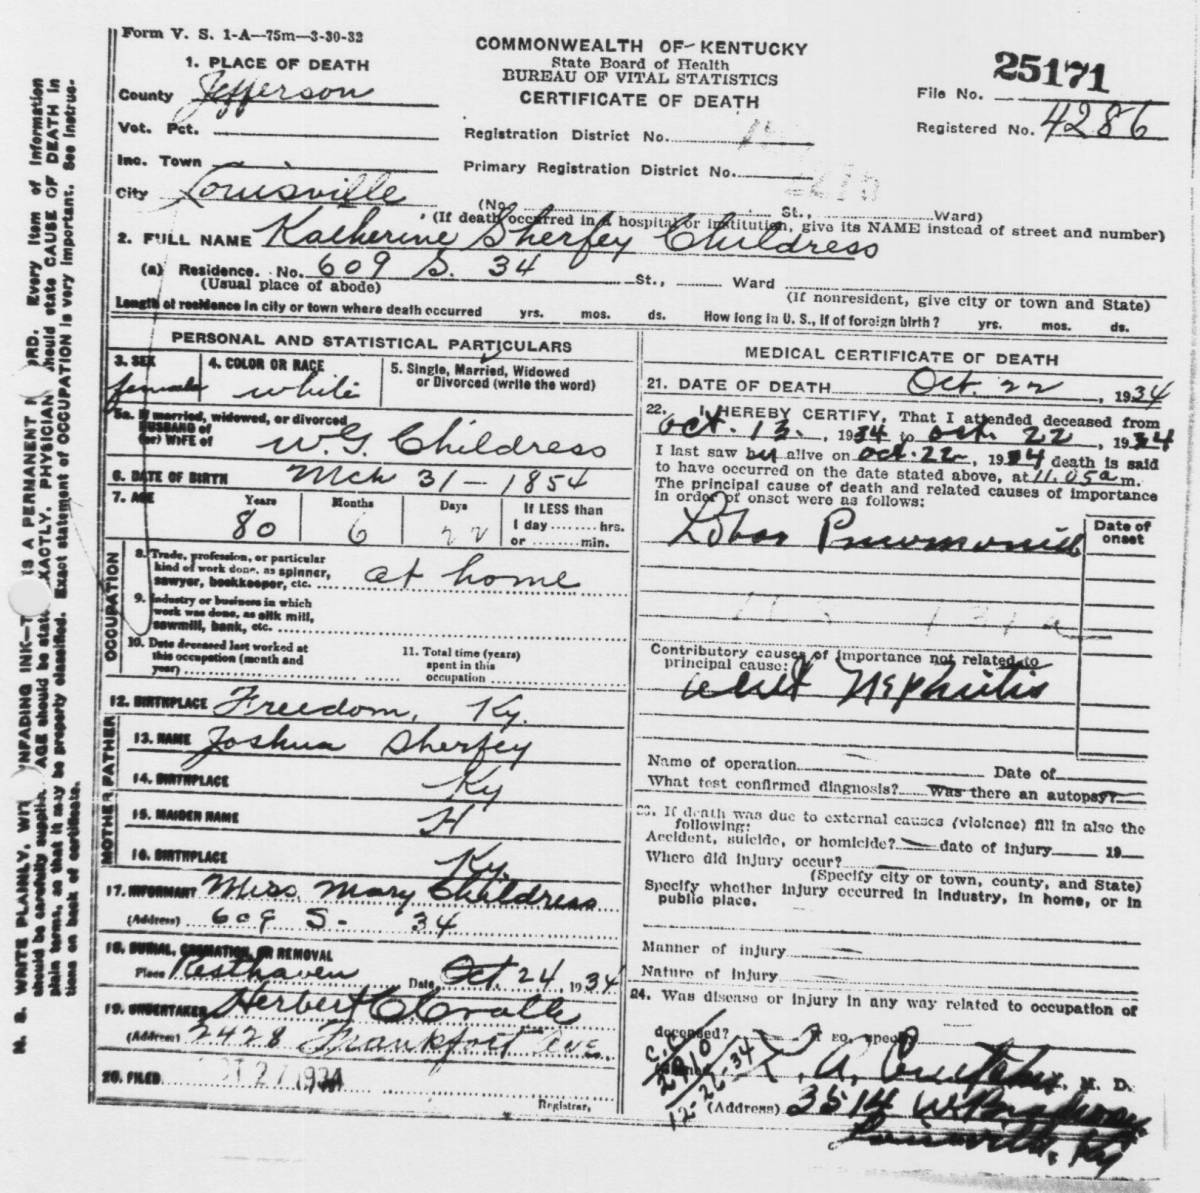 Form V. S. 1-A—75m—3-30-32
COMMONWEALTH OF KENTUCKY
State Board of Health
BUREAU OF VITAL STATISTICS
CERTIFICATE OF DEATH
25171
File No.
Registered No. 4286
1. PLACE OF DEATH
County Jefferson
Vot. Pct.
Inc. Town
City Louisville
Registration District No.
Primary Registration District No.
(No. St., Ward)
(If death occurred in a hospital or institution, give its NAME instead of street and number)
2. FULL NAME Katherine Sherfey Childress
(a) Residence. No. 609 S. 34 St., Ward
(Usual place of abode)
(If nonresident, give city or town and State)
Length of residence in city or town where death occurred yrs. mos. ds. How long in U. S., if of foreign birth? yrs. mos. ds.
PERSONAL AND STATISTICAL PARTICULARS
3. SEX
female
4. COLOR OR RACE
white
5. Single, Married, Widowed
or Divorced (write the word)
5a. If married, widowed, or divorced
HUSBAND of
(or) WIFE of W.G. Childress
6. DATE OF BIRTH Mch 31 - 1854
7. AGE Years Months Days If LESS than
80 6 22 1 day ........ hrs.
or ........ min.
OCCUPATION
8. Trade, profession, or particular
kind of work done, as spinner,
sawyer, bookkeeper, etc. at home
9. Industry or business in which
work was done, as silk mill,
sawmill, bank, etc.
10. Date deceased last worked at
this occupation (month and
year)
11. Total time (years)
spent in this
occupation
12. BIRTHPLACE Freedom, Ky.
FATHER
13. NAME Joshua Sherfey
14. BIRTHPLACE Ky
MOTHER
15. MAIDEN NAME
16. BIRTHPLACE Ky.
17. INFORMANT Miss. Mary Childress
(Address) 609 S- 34
18. BURIAL, CREMATION, OR REMOVAL
Place Resthaven Date Oct. 24, 1934
19. UNDERTAKER Herbert C. Cralle
(Address) 2428 Frankfort Ave.
20. FILED OCT 27 1934
Registrar.
MEDICAL CERTIFICATE OF DEATH
21. DATE OF DEATH Oct. 22, 1934
22. I HEREBY CERTIFY, That I attended deceased from
Oct. 13., 1934 to Oct. 22, 1934
I last saw her alive on Oct. 22, 1934 death is said
to have occurred on the date stated above, at 11.05a m.
The principal cause of death and related causes of importance
in order of onset were as follows:
Date of
onset
Lobar Pneumonia
Contributory causes of importance not related to
principal cause:
Acute Nephritis
Name of operation Date of
What test confirmed diagnosis? Was there an autopsy?
23. If death was due to external causes (violence) fill in also the
following:
Accident, suicide, or homicide? date of injury 19
Where did injury occur?
(Specify city or town, county, and State)
Specify whether injury occurred in industry, in home, or in
public place.
Manner of injury
Nature of injury
24. Was disease or injury in any way related to occupation of
deceased? If so, specify
A. M. D.
(Address) 3514 W. Broadway
Louisville, Ky
12-26-34
N. B. WRITE PLAINLY, WITH UNFADING INK—THIS IS A PERMANENT RECORD. Every item of information
should be carefully supplied. AGE should be stated EXACTLY. PHYSICIAN should state CAUSE OF DEATH in
plain terms, so that it may be properly classified. Exact statement of OCCUPATION is very important. See instruc-
tions on back of certificate.